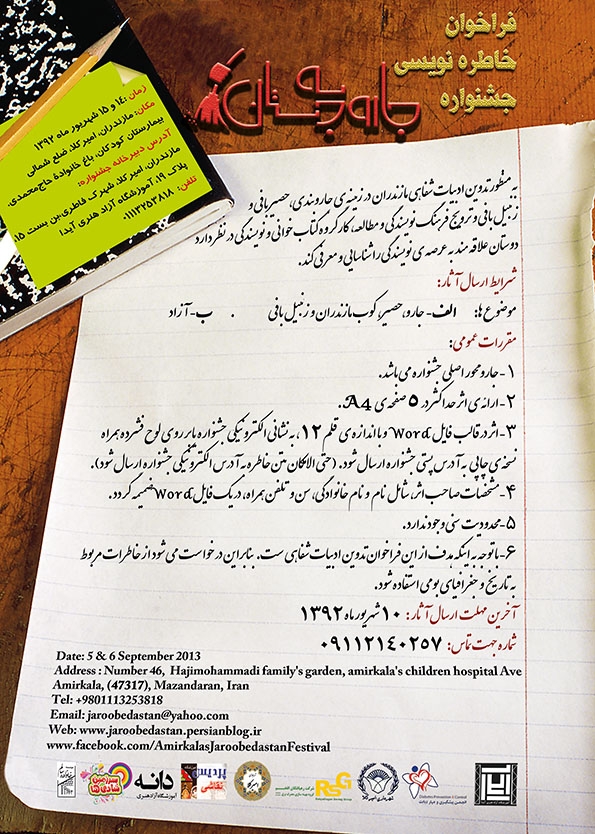 فراخوان
خاطره نویسی
جشنواره
جارو به دستان
زمان: ۱۴ و ۱۵ شهریور ماه ۱۳۹۲
مکان: مازندران، امیرکلا، ضلع شمالی
بیمارستان کودکان، باغ خانوادهٔ حاج‌محمدی.
آدرس دبیرخانه جشنواره:
مازندران، امیرکلا، شهرک فاطری، بن بست ۱۵،
پلاک ۱۹، آموزشگاه آزاد هنری آیدا
تلفن: ۰۱۱۱۳۲۵۳۸۱۸
به منظور تدوین ادبیات شفاهی مازندران در زمینه‌ی جاروبندی، حصیربافی و
زنبیل بافی و ترویج فرهنگ نویسندگی و مطالعه، کارگروه کتاب خوانی و نویسندگی در نظر دارد
دوستان علاقه مند به عرصه‌ی نویسندگی را شناسایی و معرفی کند.
شرایط ارسال آثار:
موضوع ها: الف- جارو، حصیر، کوب مازندران و زنبیل بافی . ب- آزاد
مقررات عمومی:
۱- جارو محور اصلی جشنواره می باشد.
۲- ارائه‌ی اثر حداکثر در ۵ صفحه‌ی A4.
۳- اثر در قالب فایل Word و با اندازه‌ی قلم ۱۲، به نشانی الکترونیکی جشنواره یا بر روی لوح فشرده به همراه
نسخه‌ی چاپی به آدرس پستی جشنواره ارسال شود. (حتی الامکان متن خاطره به آدرس الکترونیکی جشنواره ارسال شود).
۴- مشخصات صاحب اثر، شامل نام و نام خانوادگی، سن و تلفن همراه، در یک فایل Word ضمیمه گردد.
۵- محدودیت سنی وجود ندارد.
۶- با توجه به اینکه هدف از این فراخوان تدوین ادبیات شفاهی ست. بنابراین درخواست می شود از خاطرات مربوط
به تاریخ و جغرافیای بومی استفاده شود.
آخرین مهلت ارسال آثار: ۱۰ شهریور ماه ۱۳۹۲
شماره جهت تماس: ۰۹۱۱۲۱۴۰۲۵۷
Date: 5 & 6 September 2013
Address : Number 46, Hajimohammadi family's garden, amirkala's children hospital Ave
Amirkala, (47317), Mazandaran, Iran
Tel: +9801113253818
Email: jaroobedastan@yahoo.com
Web: www.jaroobedastan.persianblog.ir
www.facebook.com/AmirkalasJaroobedastanFestival
سرزمین
شادی ها
دانه
آموزشگاه آزاد هنری
پردیس
نقاشی
RSG
شهرداری امیرکلا
Diabetes Prevention & Control